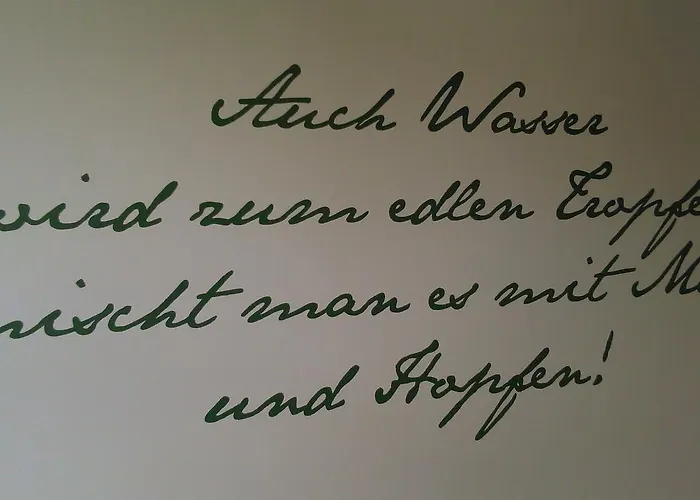 Auch Wasser
wird zum edlen Tropfe
mischt man es mit M
und Hopfen!